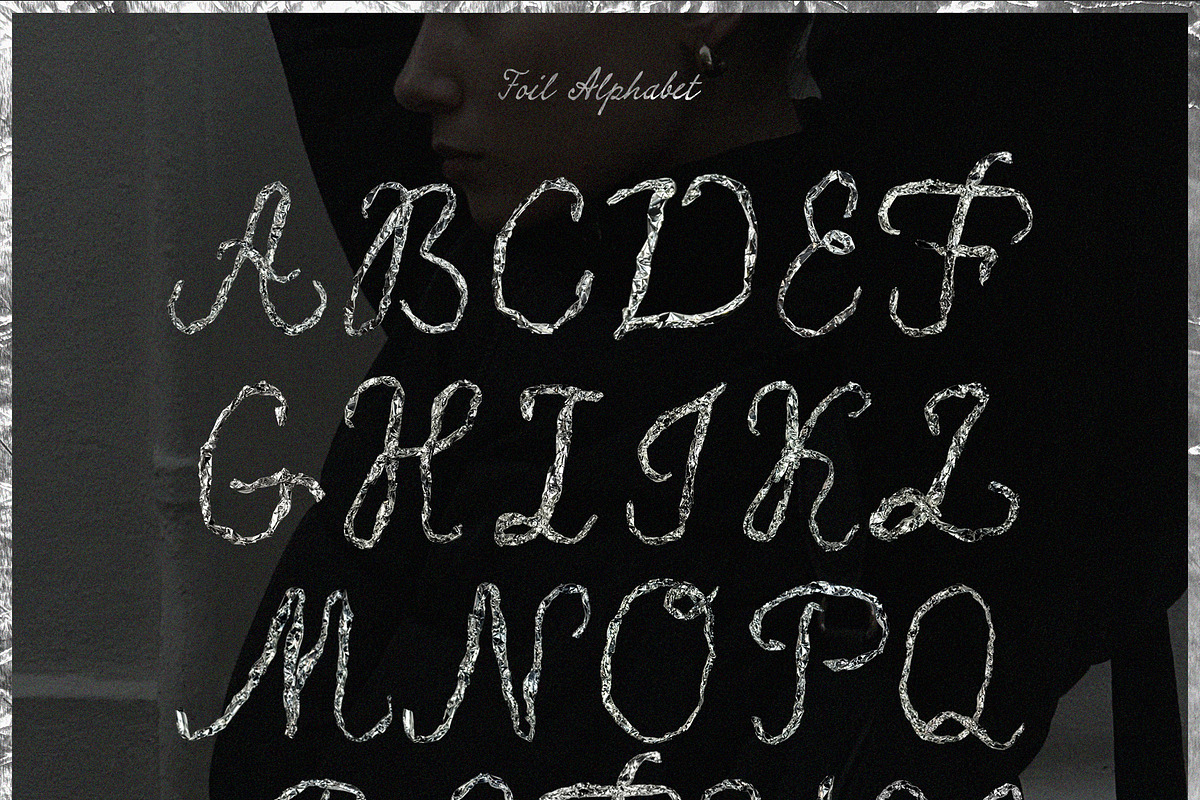 Foil Alphabet
ABCDEF
GHIJKL
MNOPQ